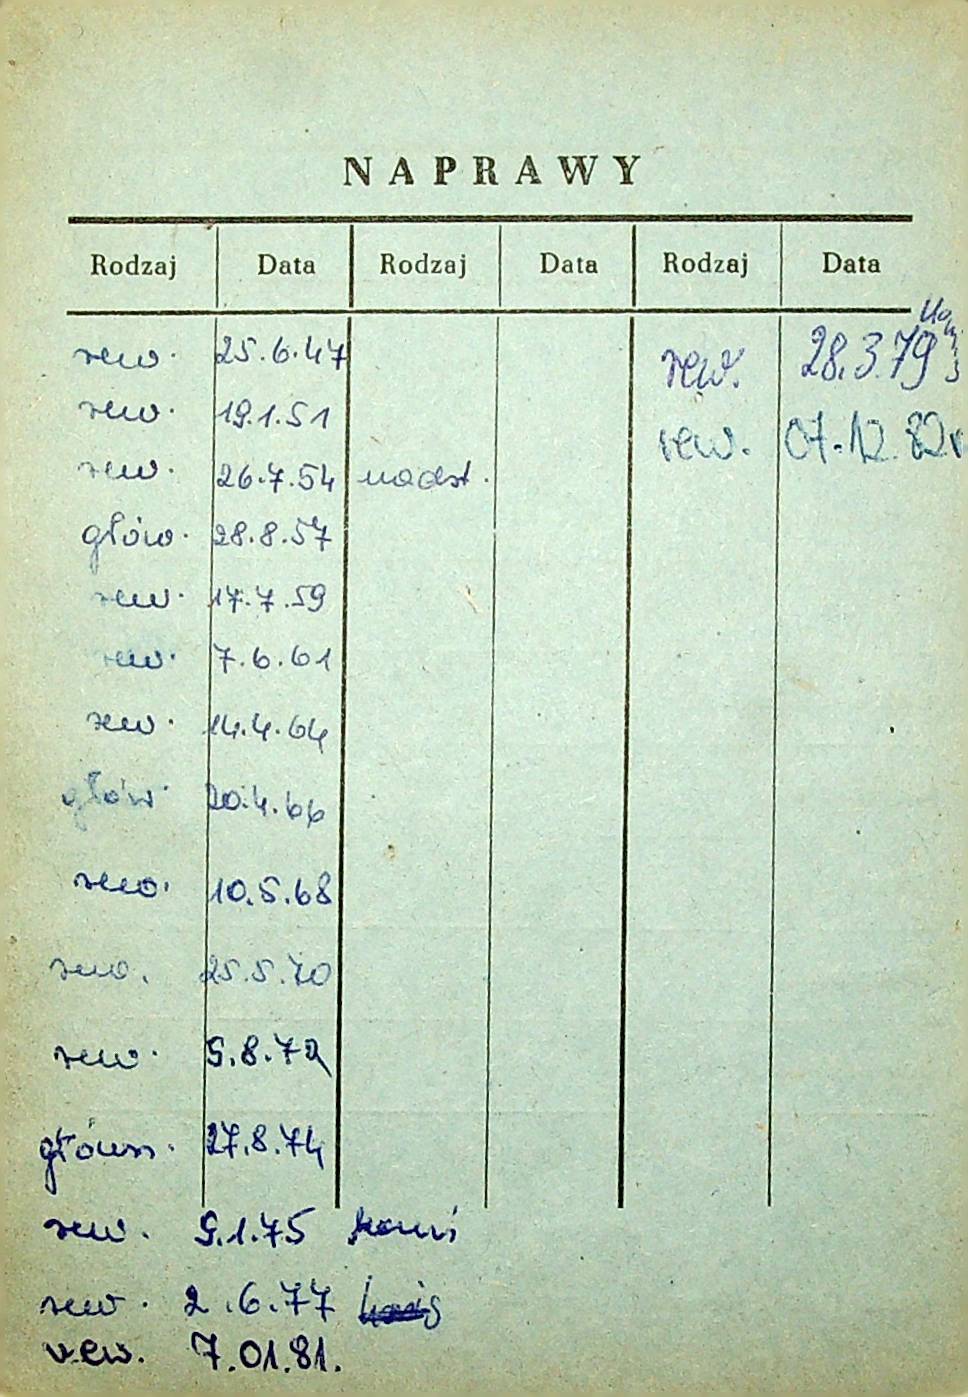 NAPRAWY
Rodzaj Data Rodzaj Data Rodzaj Data
rew. 25.6.47 rew. 28.3.79
rew. 19.1.51 rew. 07.12.82r
rew. 26.7.54 nadst.
głów. 28.8.57
rew. 17.7.59
rew. 7.6.61
rew. 14.4.64
głów. 20.4.66
rew. 10.5.68
rew. 25.5.70
rew. 9.8.72
główn. 27.8.74
rew. 9.1.75
rew. 2.6.77
rew. 7.01.81.